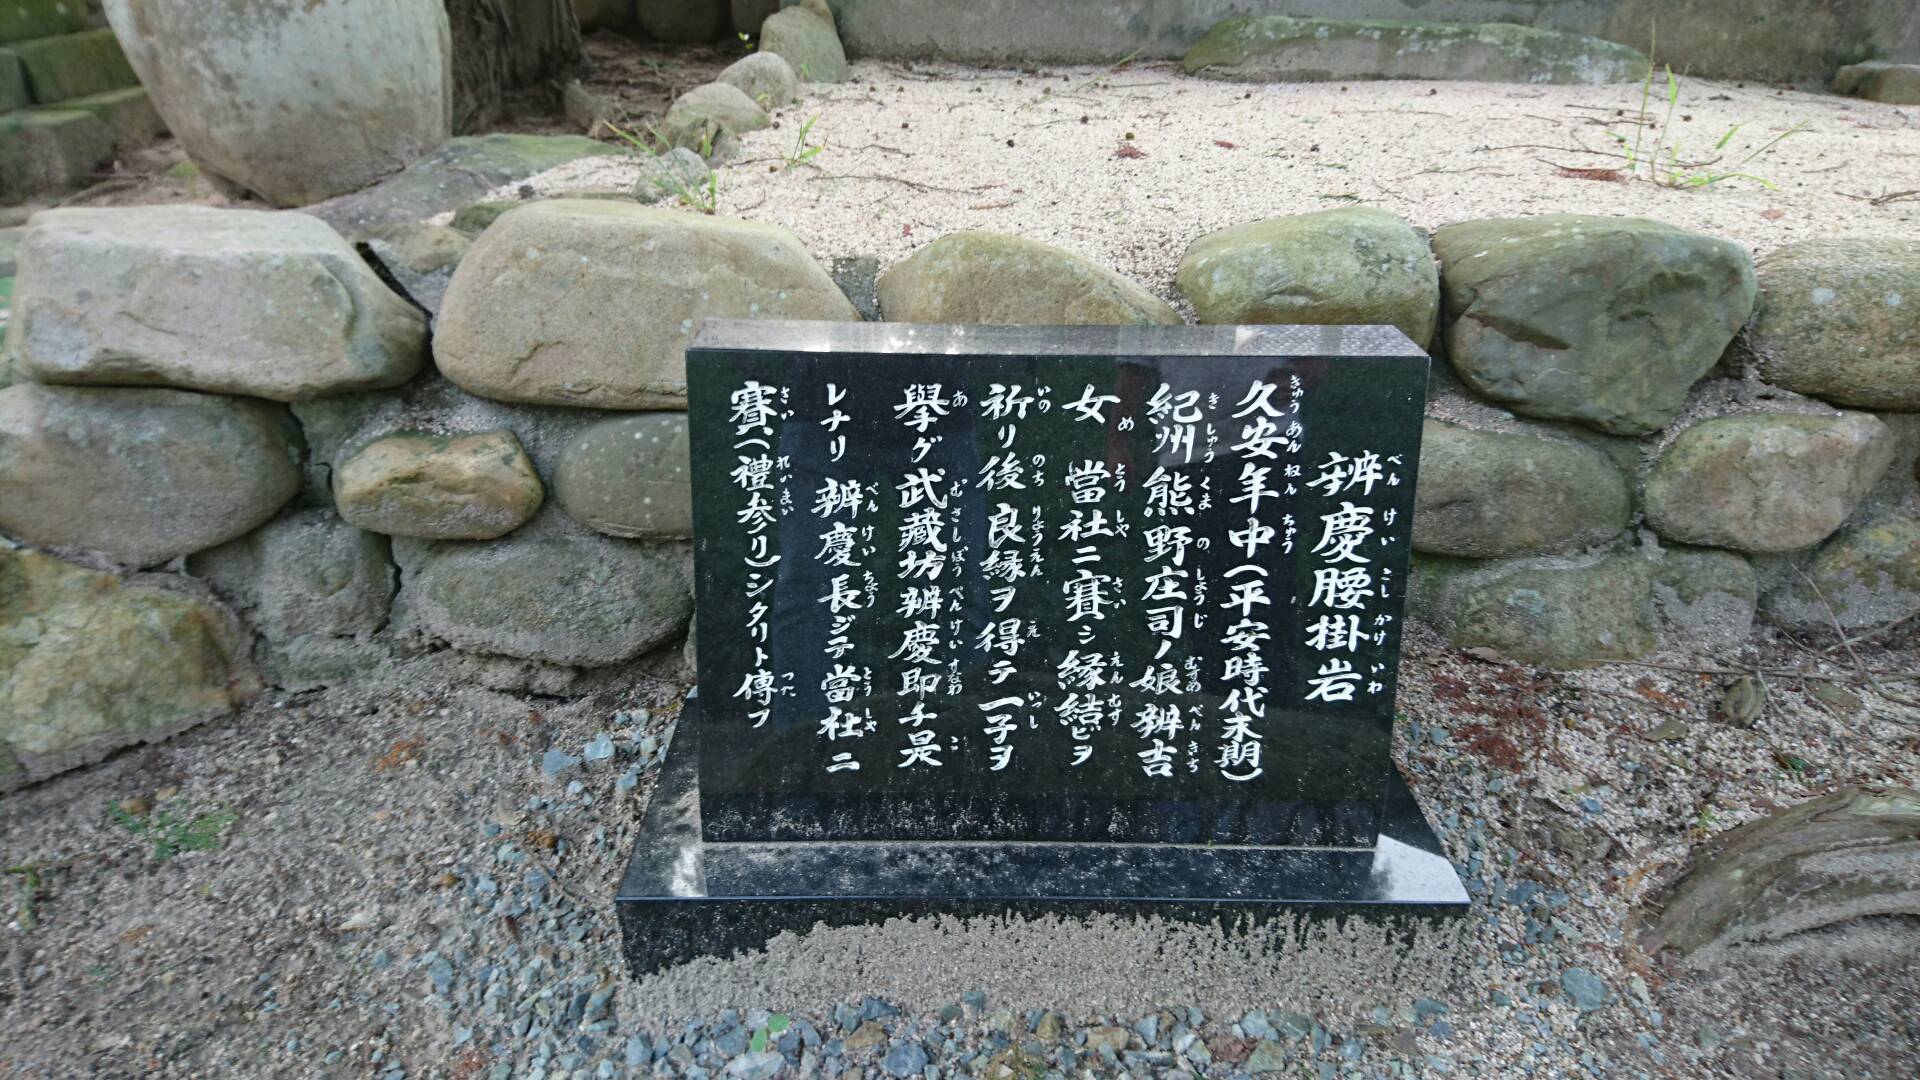 辨慶腰掛岩
久安年中(平安時代末期)
紀州熊野庄司ノ娘辨吉
女 當社ニ賽シ縁結ビヲ
祈リ後良縁ヲ得テ一子ヲ
擧グ武藏坊辨慶即チ是
レナリ 辨慶長ジテ當社ニ
賽(禮参リ)シタリト傳フ